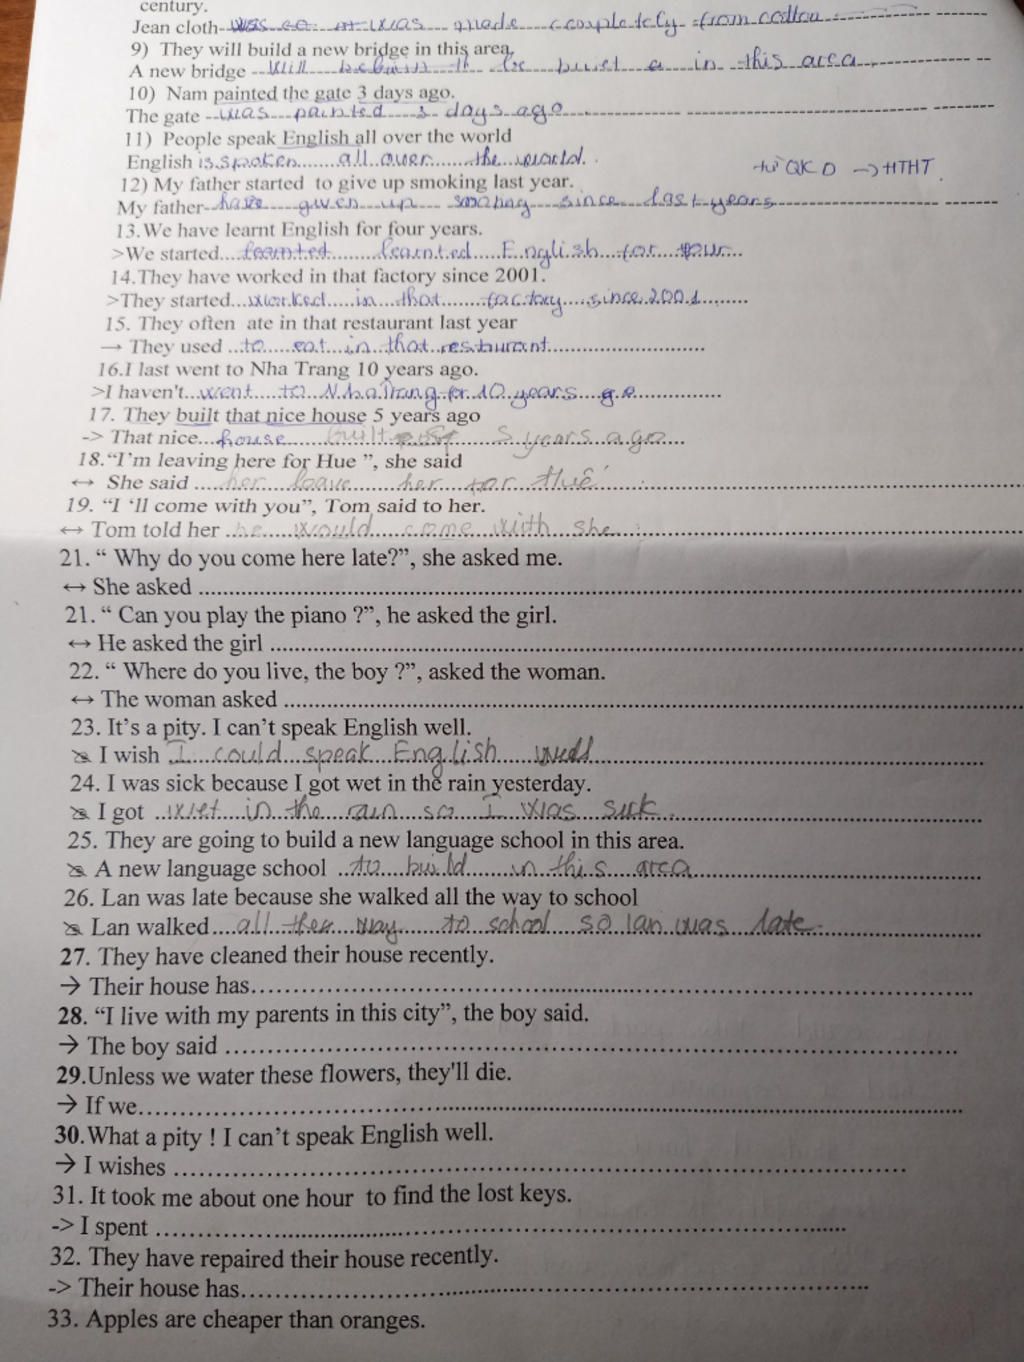 century.
Jean cloth was made completely from cotton
9) They will build a new bridge in this area.
A new bridge will be built in this area
10) Nam painted the gate 3 days ago.
The gate was painted 3 days ago
11) People speak English all over the world
English is spoken all over the world.
từ QKD → HTHT.
12) My father started to give up smoking last year.
My father have given up smoking since last years
13.We have learnt English for four years.
>We started learnted English for four
14.They have worked in that factory since 2001.
>They started worked in that factory since 2001
15. They often ate in that restaurant last year
→ They used to eat in that restaurant
16.I last went to Nha Trang 10 years ago.
>I haven't went to Nha Trang for 10 years
17. They built that nice house 5 years ago
-> That nice house built 5 years ago
18.“I’m leaving here for Hue ”, she said
↔ She said her leave her for Huế
19. “I ‘ll come with you”, Tom said to her.
↔ Tom told her he would come with she
21. “ Why do you come here late?”, she asked me.
↔ She asked
21. “ Can you play the piano ?”, he asked the girl.
↔ He asked the girl
22. “ Where do you live, the boy ?”, asked the woman.
↔ The woman asked
23. It’s a pity. I can’t speak English well.
I wish I could speak English well
24. I was sick because I got wet in the rain yesterday.
I got wet in the rain so I was sick.
25. They are going to build a new language school in this area.
A new language school to build in this area
26. Lan was late because she walked all the way to school
Lan walked all the way to school so lan was late
27. They have cleaned their house recently.
→ Their house has
28. “I live with my parents in this city”, the boy said.
→ The boy said
29.Unless we water these flowers, they'll die.
→ If we
30.What a pity ! I can’t speak English well.
→ I wishes
31. It took me about one hour to find the lost keys.
-> I spent
32. They have repaired their house recently.
-> Their house has
33. Apples are cheaper than oranges.